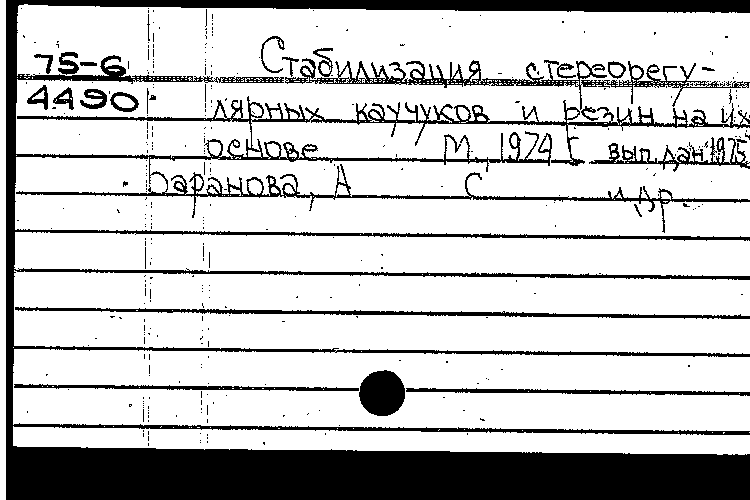 75-6 Стабилизация стереорегу-
4490 лярных каучуков и резин на их
основе М., 1974 г. вып. дан. 1975
Баранова, А С и др.